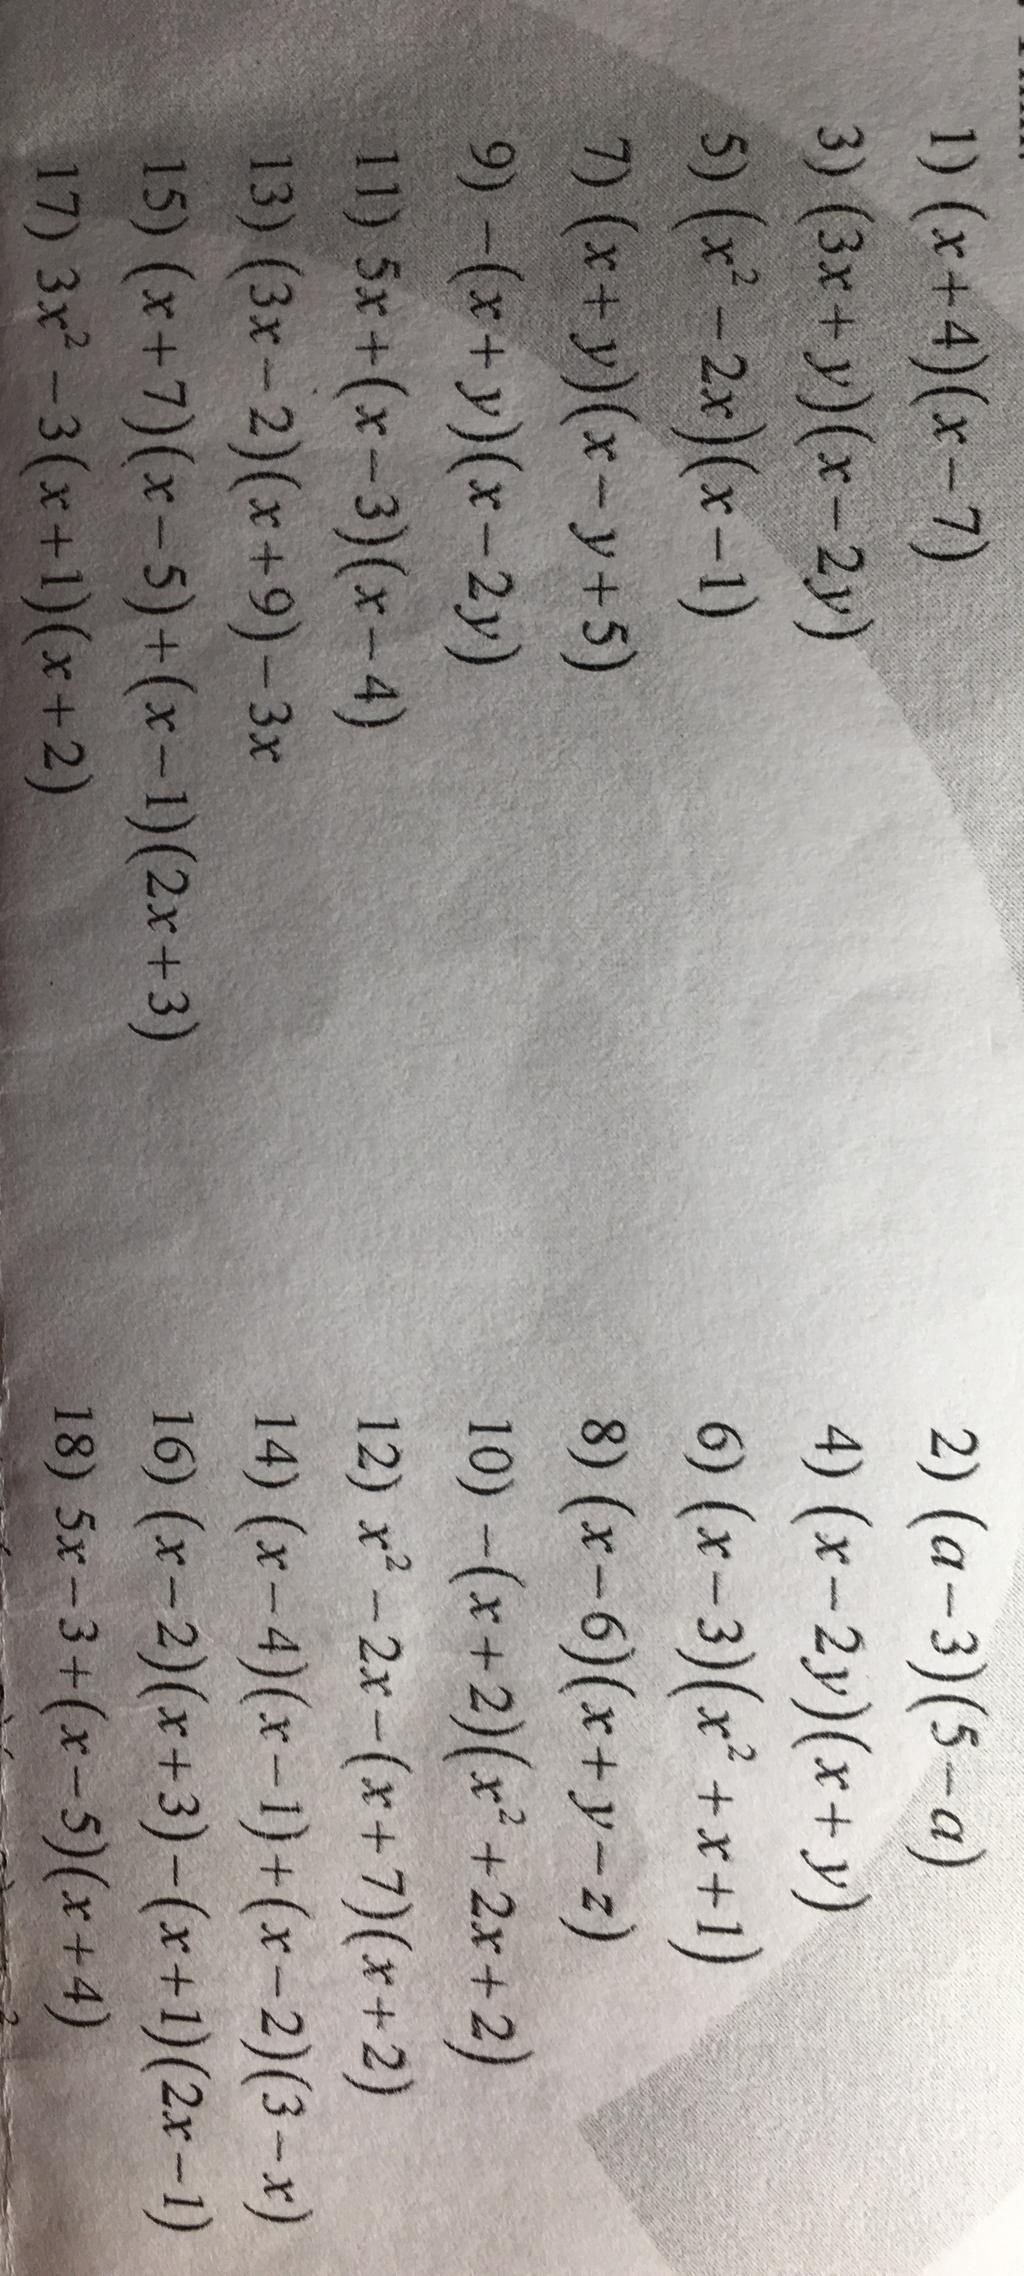 1) (x+4)(x−7) 2) (a−3)(5−a)
3) (3x+y)(x−2y) 4) (x−2y)(x+y)
5) (x²−2x)(x−1) 6) (x−3)(x²+x+1)
7) (x+y)(x−y+5) 8) (x−6)(x+y−z)
9) −(x+y)(x−2y) 10) −(x+2)(x²+2x+2)
11) 5x+(x−3)(x−4) 12) x²−2x−(x+7)(x+2)
13) (3x−2)(x+9)−3x 14) (x−4)(x−1)+(x−2)(3−x)
15) (x+7)(x−5)+(x−1)(2x+3) 16) (x−2)(x+3)−(x+1)(2x−1)
17) 3x²−3(x+1)(x+2) 18) 5x−3+(x−5)(x+4)